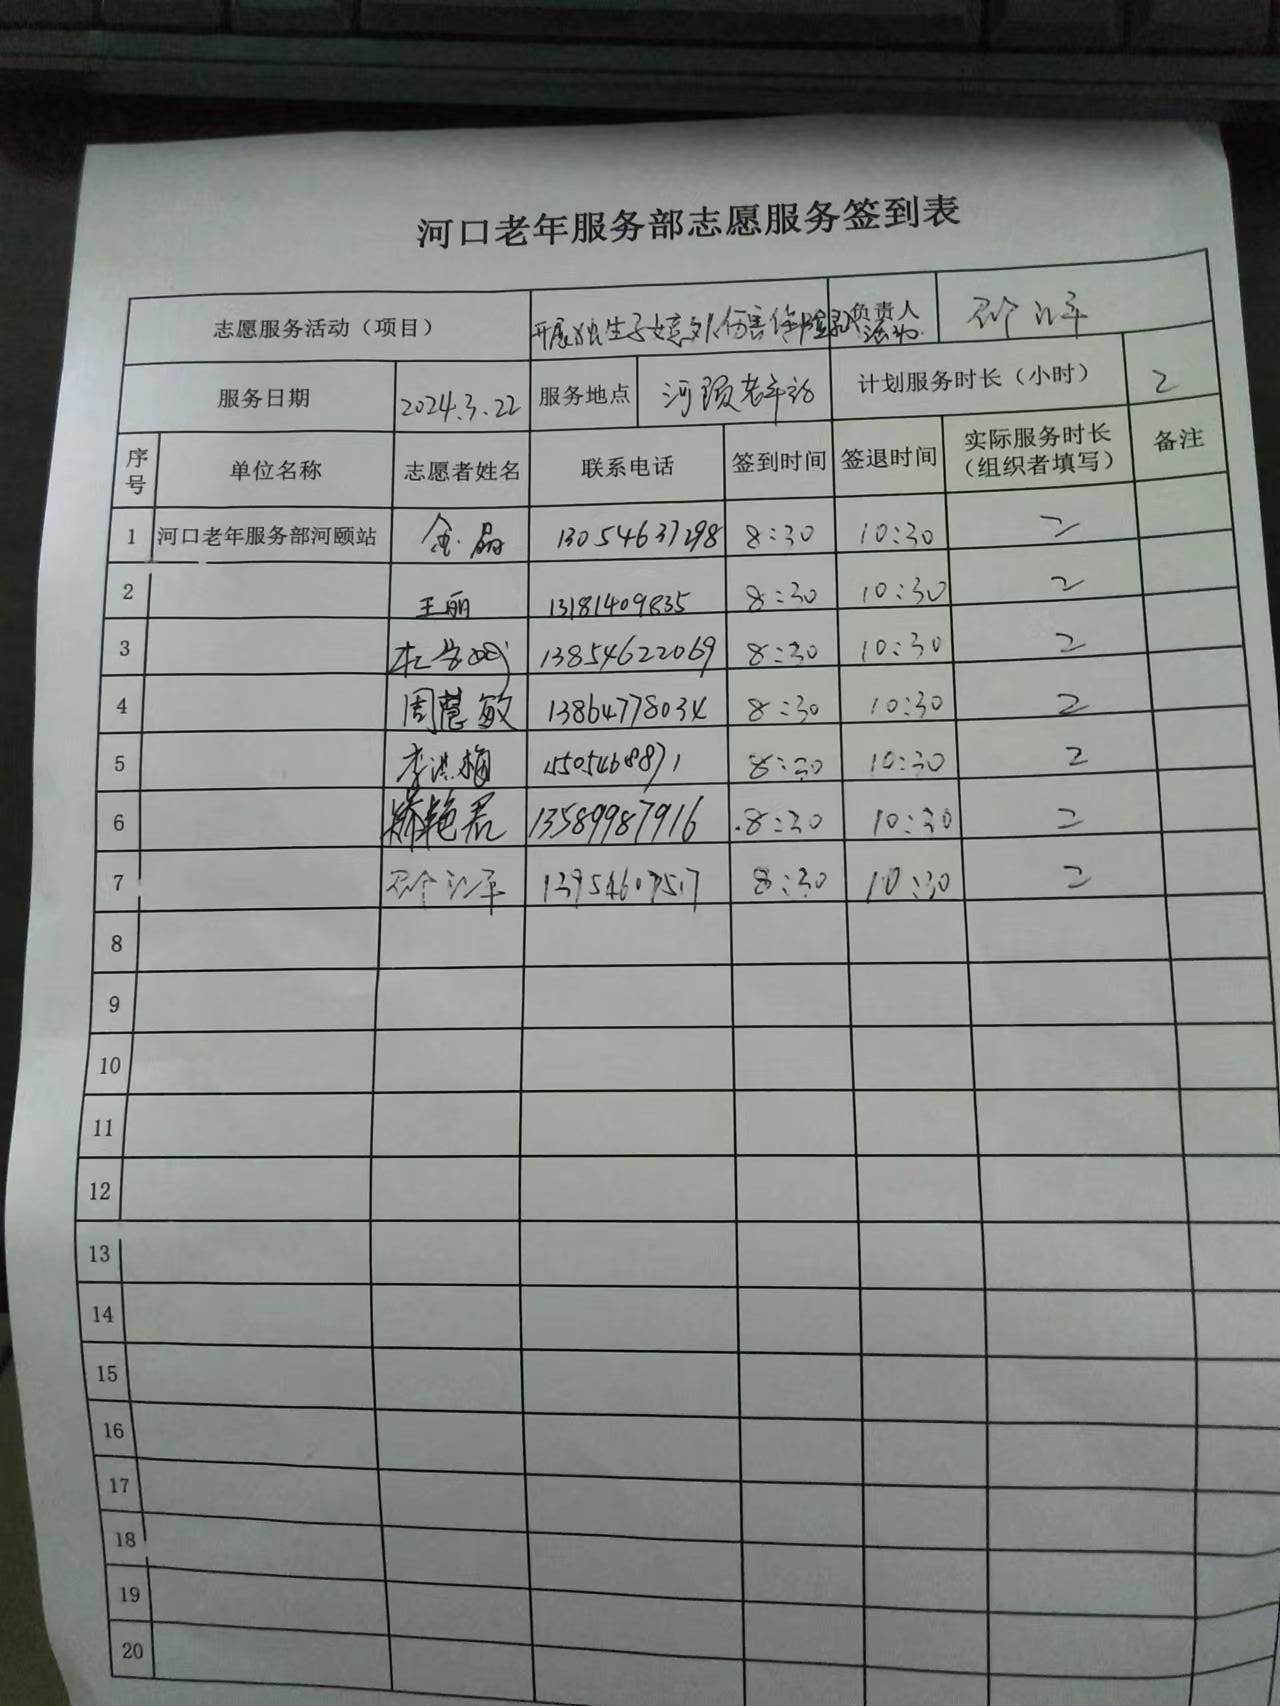 河口老年服务部志愿服务签到表
志愿服务活动（项目） 开展独生子女意外伤害保险 活动 负责人
服务日期 2024.3.22 服务地点 河颐老年站 计划服务时长（小时） 2
序号 单位名称 志愿者姓名 联系电话 签到时间 签退时间 实际服务时长（组织者填写） 备注
1 河口老年服务部河颐站 金晶 13054637298 8:30 10:30 2
2 王丽 13181409835 8:30 10:30 2
3 13854622069 8:30 10:30 2
4 周慧敏 13864778034 8:30 10:30 2
5 李洪梅 8:30 10:30 2
6 艳君 13589987916 8:30 10:30 2
7 13954607517 8:30 10:30 2
8
9
10
11
12
13
14
15
16
17
18
19
20